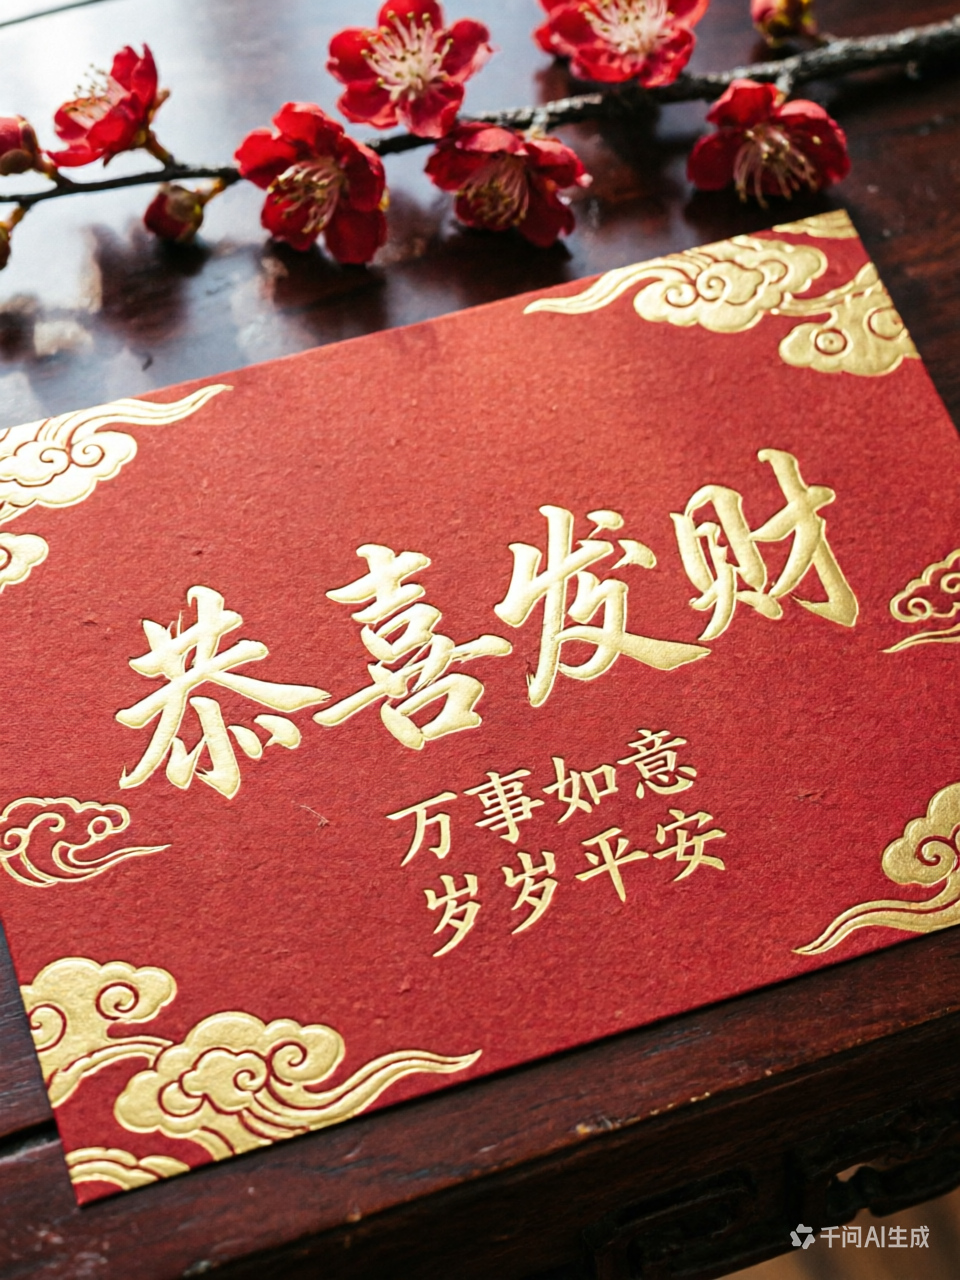 恭喜发财
万事如意
岁岁平安
千问AI生成